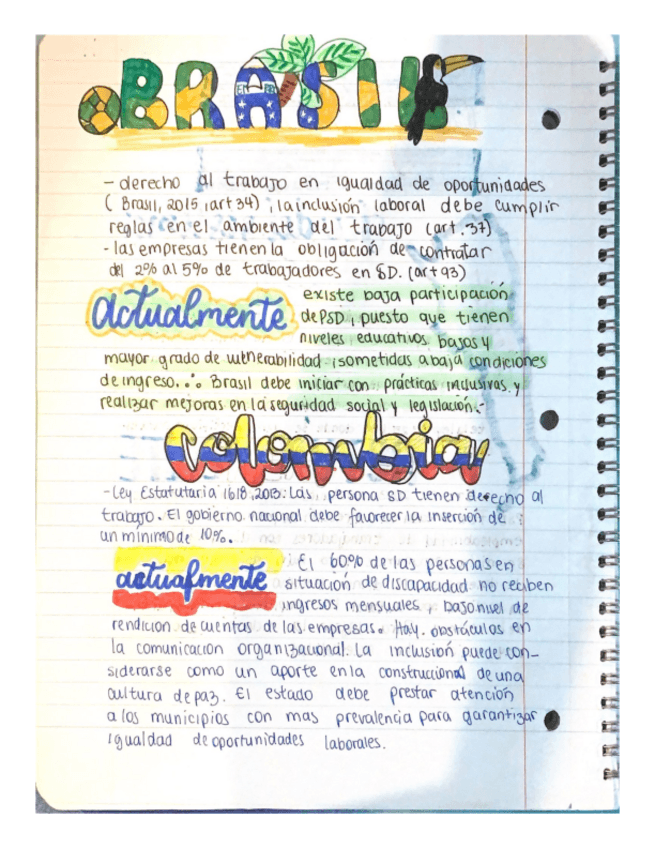 BRASIL
- derecho al trabajo en igualdad de oportunidades
(Brasil, 2015, art 34), la inclusión laboral debe cumplir
reglas en el ambiente del trabajo (art. 37)
- las empresas tienen la obligación de contratar
del 2% al 5% de trabajadores en SD. (art 93)
actualmente existe baja participación
de PSD, puesto que tienen
niveles educativos bajos y
mayor grado de vulnerabilidad, sometidas a baja condiciones
de ingreso. ∴ Brasil debe iniciar con prácticas inclusivas y
realizar mejoras en la seguridad social y legislación.-
colombia
- Ley Estatutaria 1618, 2013: Las persona SD tienen derecho al
trabajo. El gobierno nacional debe favorecer la inserción de
un mínimo de 10%.
actualmente El 60% de las personas en
situación de discapacidad no reciben
ingresos mensuales, bajo nivel de
rendicion de cuentas de las empresas. Hay. obstáculos en
la comunicación organizacional. La inclusión puede con-
siderarse como un aporte en la construccional de una
cultura de paz. El estado debe prestar atención
a los municipios con mas prevalencia para garantizar
igualdad de oportunidades laborales.